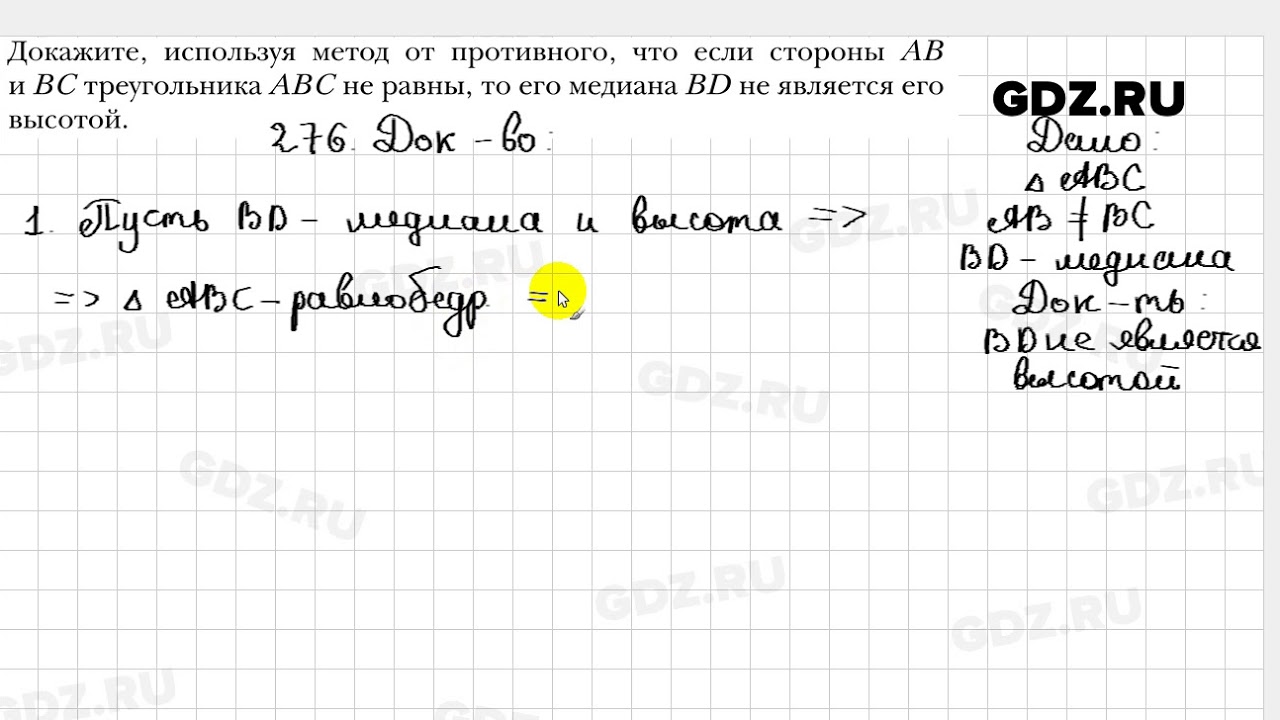 Докажите, используя метод от противного, что если стороны AB
и BC треугольника ABC не равны, то его медиана BD не является его
высотой.
GDZ.RU
276. Док-во:
Дано:
△ ABC
1. Пусть BD - медиана и высота =>
AB ≠ BC
BD - медиана
=> △ ABC - равнобедр =
Док-ть:
BD не является
высотой
GDZ.RU
GDZ.RU
GDZ.RU
GDZ.RU
GDZ.RU
GDZ.RU
GDZ.RU
GDZ.RU
GDZ.RU
GDZ.RU
GDZ.RU